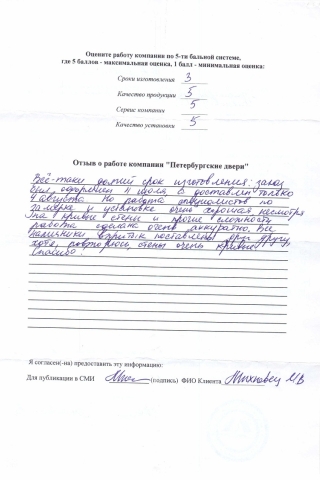 Оцените работу компании по 5-ти бальной системе,
где 5 баллов - максимальная оценка, 1 балл - минимальная оценка:
Сроки изготовления 3
Качество продукции 5
Сервис компании 5
Качество установки 5
Отзыв о работе компании "Петербургские двери"
Всё-таки долгий срок изготовления: заказ
был оформлен 11 июля, а доставлен только
4 августа. Но работа специалистов по
замерке и установке очень хорошая, несмотря
на кривые стены и прочие сложности
работа сделана очень аккуратно. Все
наличники встык поставлены друг другу,
хотя, повторюсь, стены очень кривые.
Спасибо.
Я согласен(-на) предоставить эту информацию:
Для публикации в СМИ (подпись) ФИО Клиента Михновец МВ